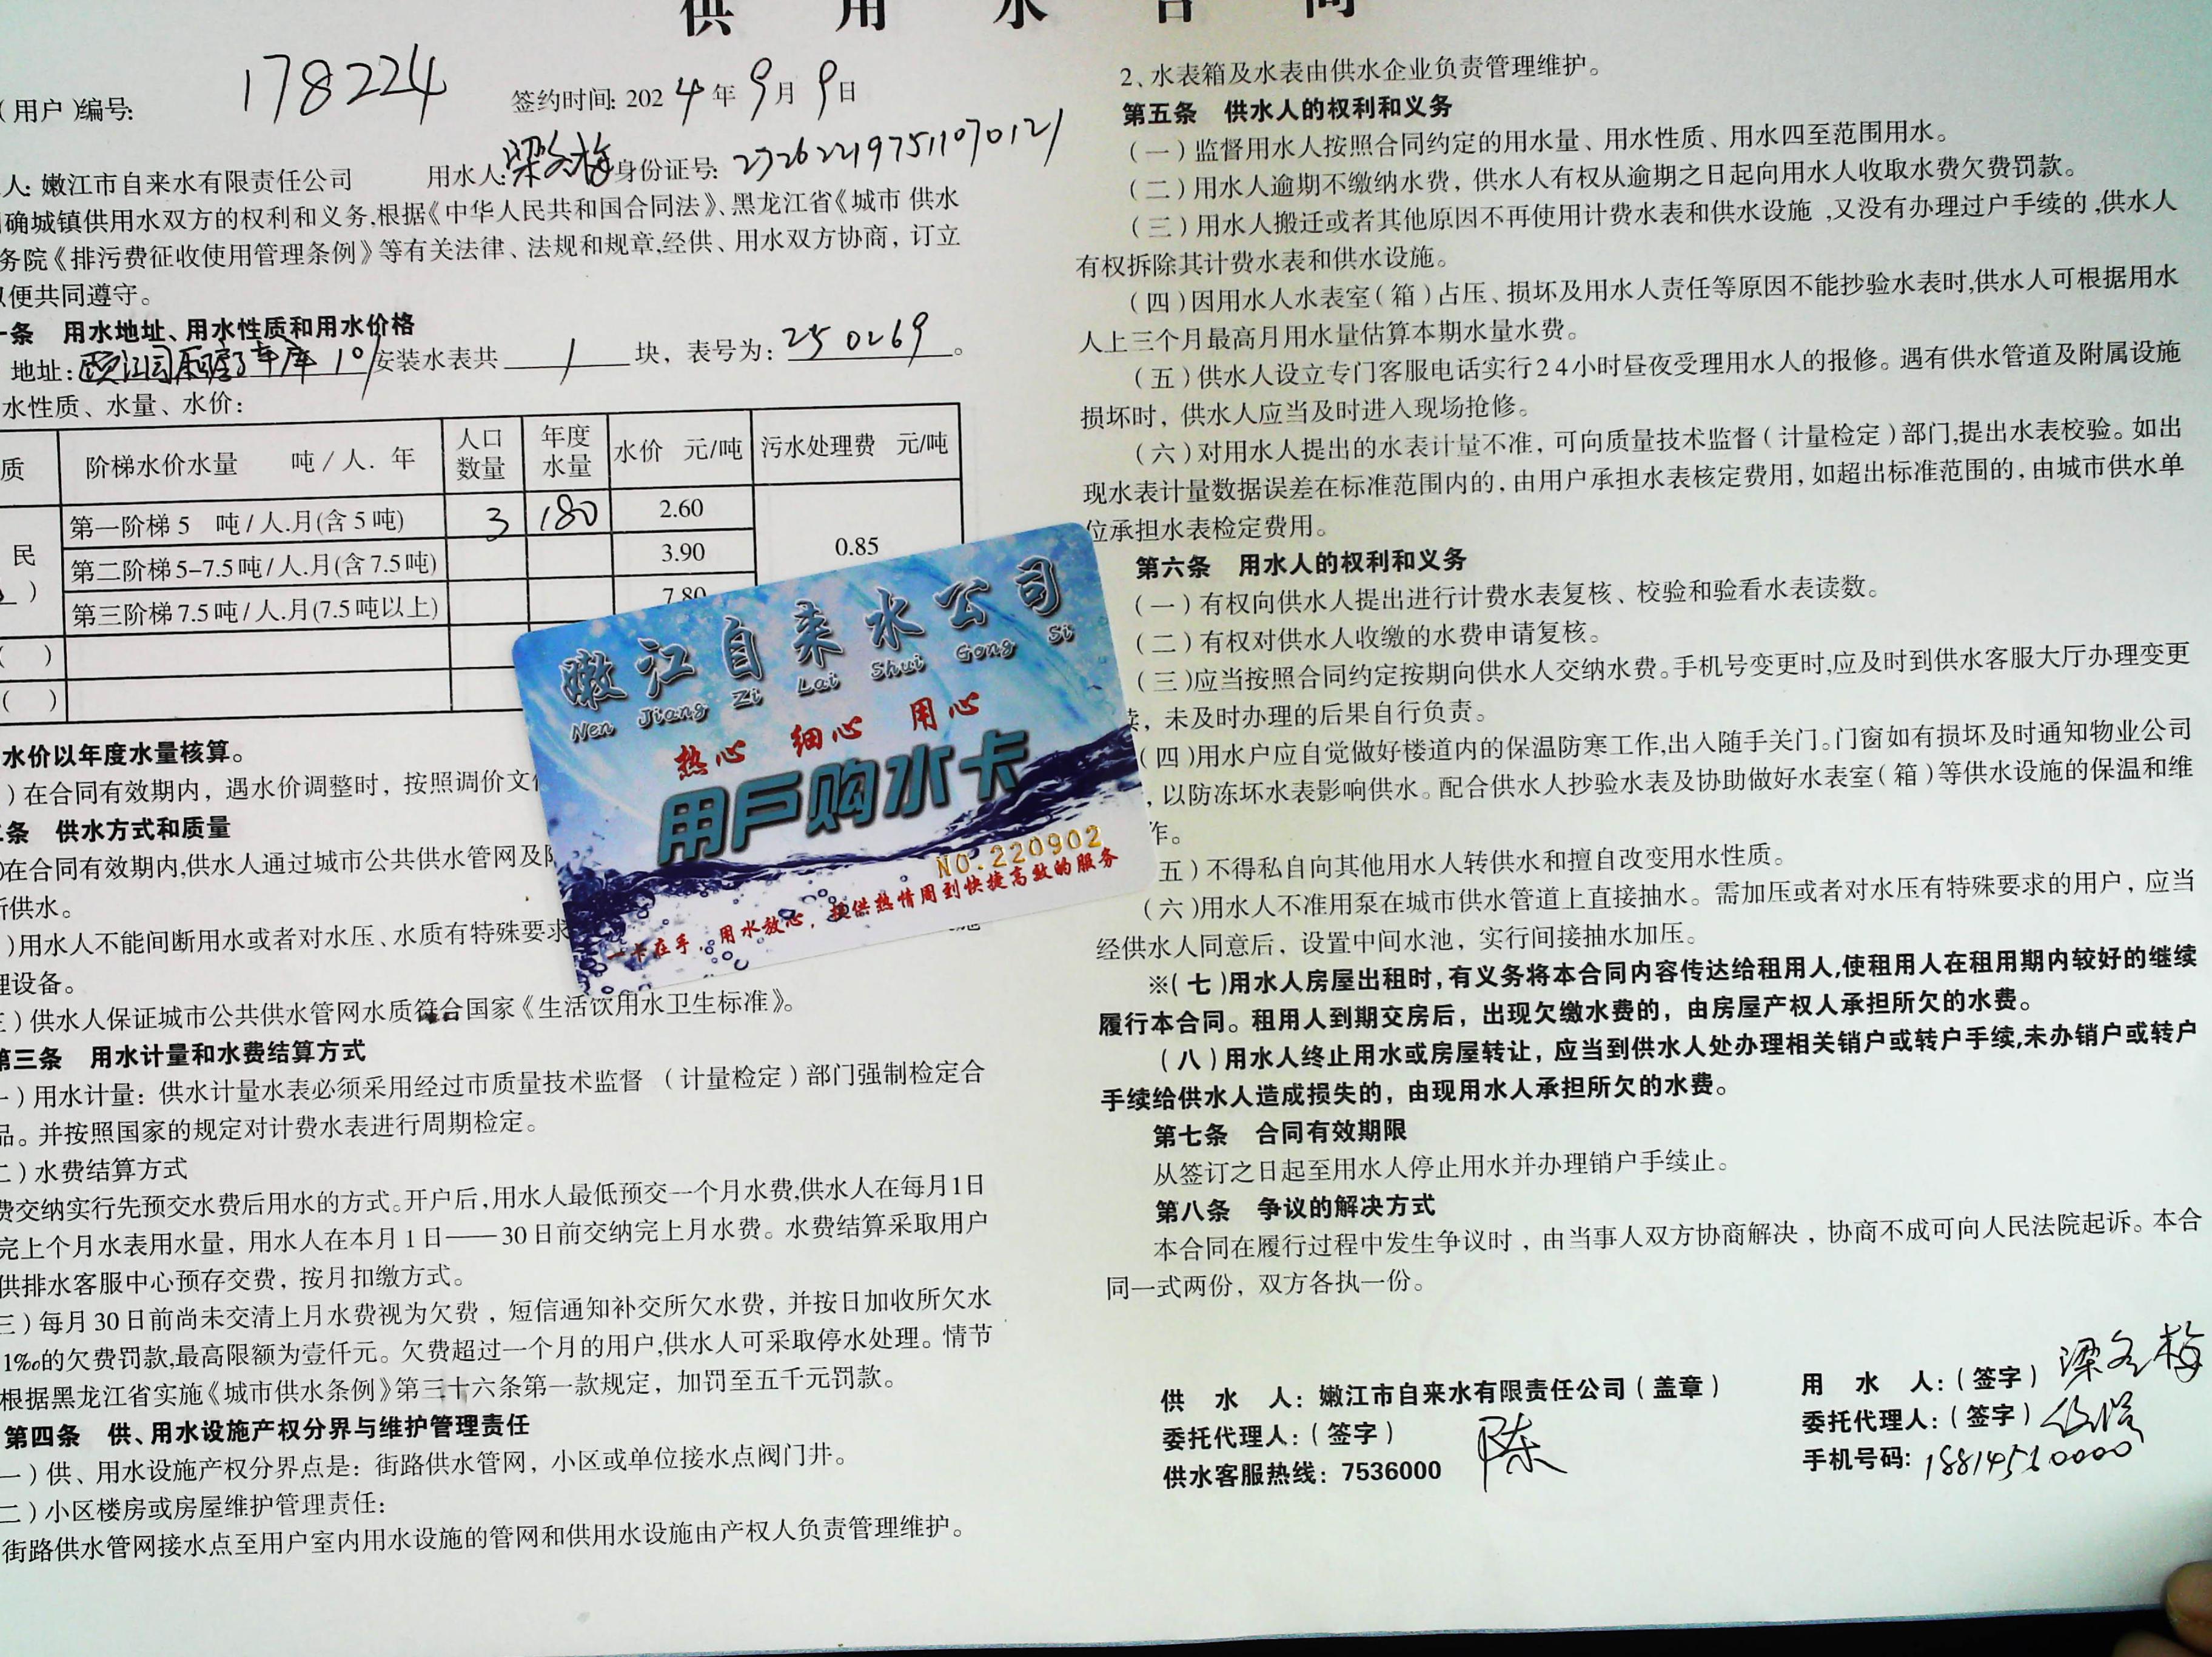 供用水合同
(用户)编号: 178224 签约时间: 2024年9月9日
人: 嫩江市自来水有限责任公司 用水人: 梁冬梅 身份证号: 232622197511070121
确城镇供用水双方的权利和义务,根据《中华人民共和国合同法》、黑龙江省《城市 供水
务院《排污费征收使用管理条例》等有关法律、法规和规章,经供、用水双方协商，订立
便共同遵守。
条 用水地址、用水性质和用水价格
地址: 车库 安装水表共 1 块，表号为: 250269。
水性质、水量、水价：
质 阶梯水价水量 吨/人. 年 人口数量 年度水量 水价 元/吨 污水处理费 元/吨
民 第一阶梯 5 吨/人.月(含 5 吨) 3 180 2.60 0.85
第二阶梯 5-7.5 吨/人.月(含 7.5 吨) 3.90
第三阶梯 7.5 吨/人.月(7.5 吨以上) 7.80
( )
( )
水价以年度水量核算。
)在合同有效期内，遇水价调整时，按照调价文
条 供水方式和质量
)在合同有效期内,供水人通过城市公共供水管网及
供水。
)用水人不能间断用水或者对水压、水质有特殊要求
理设备。
三)供水人保证城市公共供水管网水质符合国家《生活饮用水卫生标准》。
第三条 用水计量和水费结算方式
一)用水计量：供水计量水表必须采用经过市质量技术监督 （计量检定)部门强制检定合
品。并按照国家的规定对计费水表进行周期检定。
二)水费结算方式
费交纳实行先预交水费后用水的方式。开户后,用水人最低预交一个月水费,供水人在每月1日
完上个月水表用水量，用水人在本月 1 日——30 日前交纳完上月水费。水费结算采取用户
供排水客服中心预存交费，按月扣缴方式。
三)每月 30 日前尚未交清上月水费视为欠费，短信通知补交所欠水费，并按日加收所欠水
1‰的欠费罚款,最高限额为壹仟元。欠费超过一个月的用户,供水人可采取停水处理。情节
根据黑龙江省实施《城市供水条例》第三十六条第一款规定，加罚至五千元罚款。
第四条 供、用水设施产权分界与维护管理责任
一)供、用水设施产权分界点是：街路供水管网，小区或单位接水点阀门井。
二)小区楼房或房屋维护管理责任：
街路供水管网接水点至用户室内用水设施的管网和供用水设施由产权人负责管理维护。
2、水表箱及水表由供水企业负责管理维护。
第五条 供水人的权利和义务
(一)监督用水人按照合同约定的用水量、用水性质、用水四至范围用水。
(二)用水人逾期不缴纳水费，供水人有权从逾期之日起向用水人收取水费欠费罚款。
(三)用水人搬迁或者其他原因不再使用计费水表和供水设施,又没有办理过户手续的,供水人
有权拆除其计费水表和供水设施。
(四)因用水人水表室(箱)占压、损坏及用水人责任等原因不能抄验水表时,供水人可根据用水
人上三个月最高月用水量估算本期水量水费。
(五)供水人设立专门客服电话实行24小时昼夜受理用水人的报修。遇有供水管道及附属设施
损坏时，供水人应当及时进入现场抢修。
(六)对用水人提出的水表计量不准，可向质量技术监督(计量检定)部门,提出水表校验。如出
现水表计量数据误差在标准范围内的，由用户承担水表核定费用，如超出标准范围的，由城市供水单
位承担水表检定费用。
第六条 用水人的权利和义务
(一)有权向供水人提出进行计费水表复核、校验和验看水表读数。
(二)有权对供水人收缴的水费申请复核。
(三)应当按照合同约定按期向供水人交纳水费。手机号变更时,应及时到供水客服大厅办理变更
，未及时办理的后果自行负责。
(四)用水户应自觉做好楼道内的保温防寒工作,出入随手关门。门窗如有损坏及时通知物业公司
，以防冻坏水表影响供水。配合供水人抄验水表及协助做好水表室(箱)等供水设施的保温和维
作。
五)不得私自向其他用水人转供水和擅自改变用水性质。
(六)用水人不准用泵在城市供水管道上直接抽水。需加压或者对水压有特殊要求的用户，应当
经供水人同意后，设置中间水池，实行间接抽水加压。
※(七)用水人房屋出租时,有义务将本合同内容传达给租用人,使租用人在租用期内较好的继续
履行本合同。租用人到期交房后，出现欠缴水费的，由房屋产权人承担所欠的水费。
(八)用水人终止用水或房屋转让，应当到供水人处办理相关销户或转户手续,未办销户或转户
手续给供水人造成损失的，由现用水人承担所欠的水费。
第七条 合同有效期限
从签订之日起至用水人停止用水并办理销户手续止。
第八条 争议的解决方式
本合同在履行过程中发生争议时，由当事人双方协商解决，协商不成可向人民法院起诉。本合
同一式两份，双方各执一份。
供 水 人：嫩江市自来水有限责任公司(盖章)
委托代理人：(签字) 陈
供水客服热线：7536000
用 水 人：(签字) 梁冬梅
委托代理人：(签字)
手机号码: 18814510000
嫩江自来水公司
Nen Jiang Zi Lai Shui Gong Si
热心 细心 用心
用户购水卡
NO.220902
一卡在手，用水放心，提供热情周到快捷高效的服务